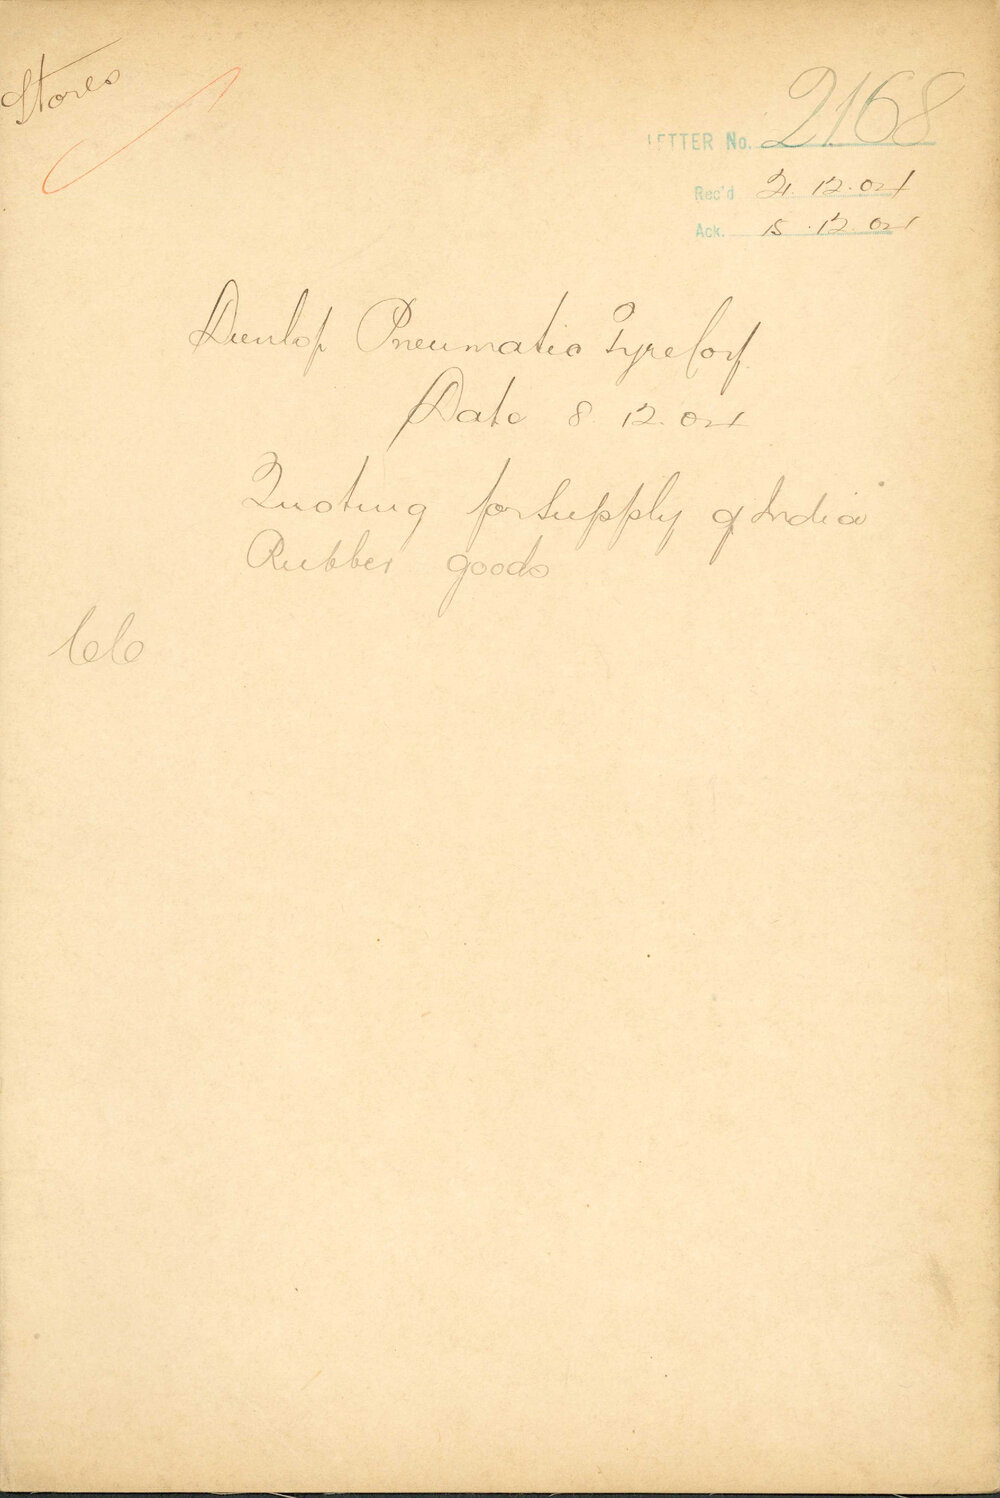 Stores
LETTER No. 2168
Rec'd 21.12.04
Ack. 15.12.04
Dunlop Pneumatic Tyre Coy.
Date 8.12.04
Quoting for supply of India
Rubber goods